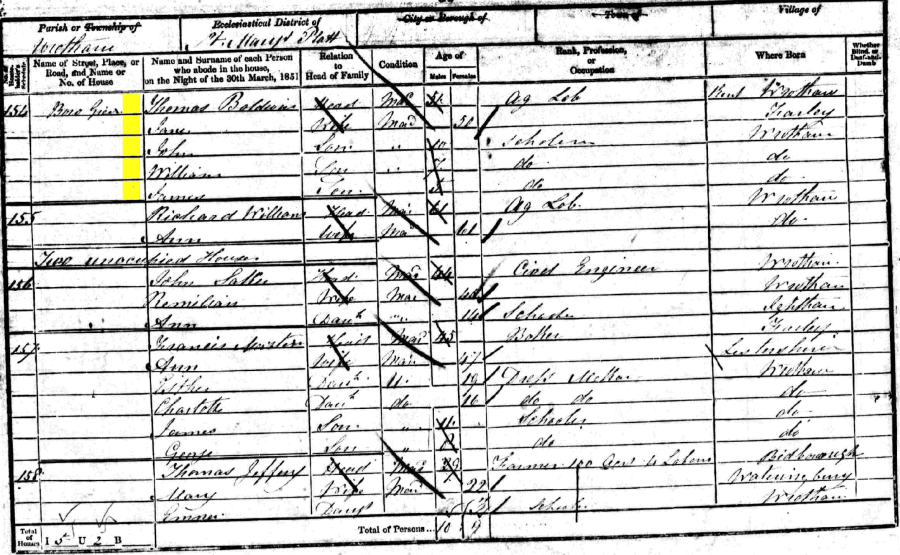 Parish or Township of Wrotham
Ecclesiastical District of St. Marys Platt
City or Borough of
Town of
Village of
Name of Street, Place, or Road, and Name or No. of House
Name and Surname of each Person who abode in the house, on the Night of the 30th March, 1851
Relation to Head of Family
Condition
Age of Males Females
Rank, Profession, or Occupation
Where Born
Whether Blind, or Deaf-and-Dumb
154 Boro Green Thomas Baldwin Head Mar 51 Ag Lab Kent Wrotham
Jane Wife Mar 50 Farley
John Son " 10 Scholar Wrotham
William Son " 7 do do
James Son do do
155 Richard Williams Head Mar 61 Ag Lab Wrotham
Ann Wife Mar 61 do
Two unoccupied Houses
156 John Head Mar 44 Civil Engineer Wrotham
Wife Mar Wrotham
Ann Daur " 14 Scholar Ightham
157 Francis Head Mar 45 Baker Farley
Ann Wife Mar 47 Lestershire
Esther Daur U 19 Dress Maker Wrotham
Charlotte Daur do 16 do do do
James Son " 11 Scholar do
George Son " do do
158 Thomas Jeffery Head Mar 29 Farmer 100 Acres 4 Labrs Bidborough
Mary Wife Mar 22 Wateringbury
Emma Daur Scholar Wrotham
Total of Houses I 5 U 2 B
Total of Persons... 10 9